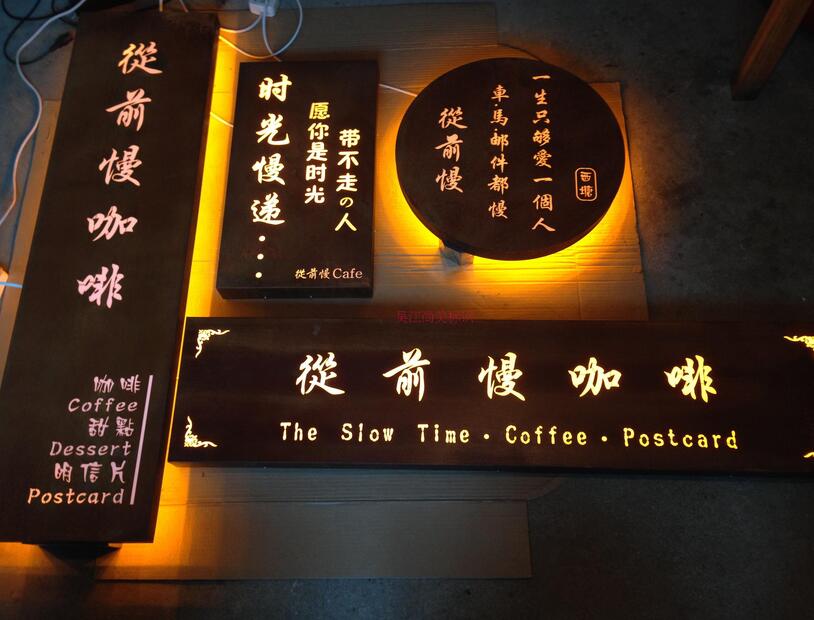 從前慢咖啡
咖啡
Coffee
甜點
Dessert
明信片
Postcard
时光慢递...
愿你是时光
带不走の人
從前慢Cafe
一生只够愛一個人
車.馬.邮件都慢
從前慢
西塘
吴江尚美标识
從前慢咖啡
The Slow Time·Coffee·Postcard